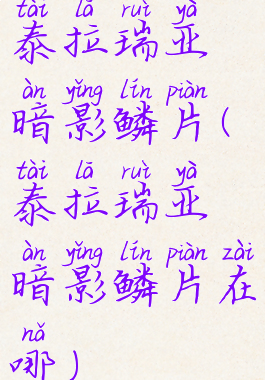 tài lā ruì yà
泰拉瑞亚
àn yǐng lín piàn
暗影鳞片(
tài lā ruì yà
泰拉瑞亚
àn yǐng lín piàn zài
暗影鳞片在
nǎ
哪)